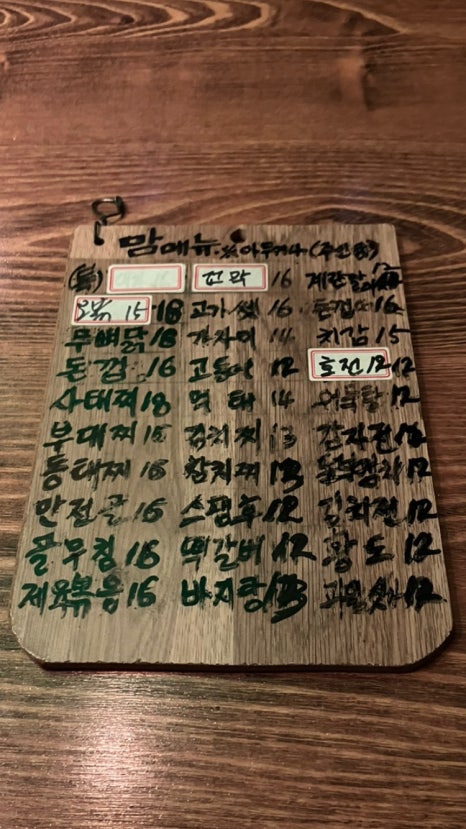 맘메뉴 ※ 아무거나 (주인맘)
꼬막 16 계란말이 12
15 18 고기 16 16
무뼈닭 18 가자미 14 치감 15
돈껍 16 고등어 12 호전 12 12
사태찌 18 먹태 14 어묵탕 12
부대찌 16 김치찌 13 감자전 12
동태찌 16 참치찌 13 12
만전골 16 스팸후 12 김치전 12
골무침 18 떡갈비 12 황도 12
제육볶음 16 바지탕 13 12